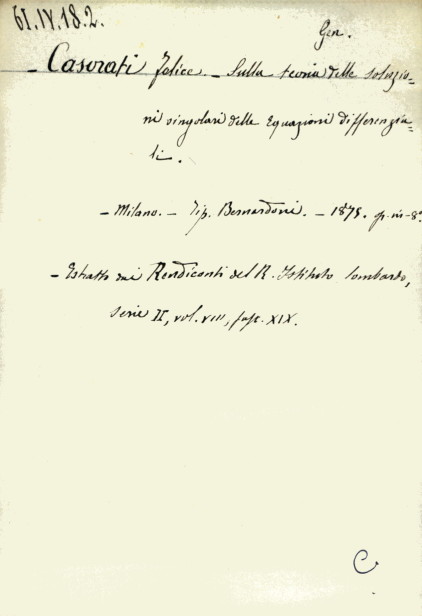 61.IV.18.2.
Gen.
- Casorati Felice. - Sulla teoria delle soluzio=
ni singolari delle Equazioni differenzia=
li.
- Milano. - Tip. Bernardoni. - 1875. in-8º
- Estratto dai Rendiconti del R. Istituto Lombardo,
Serie II, vol. VIII, fasc. XIX.
C